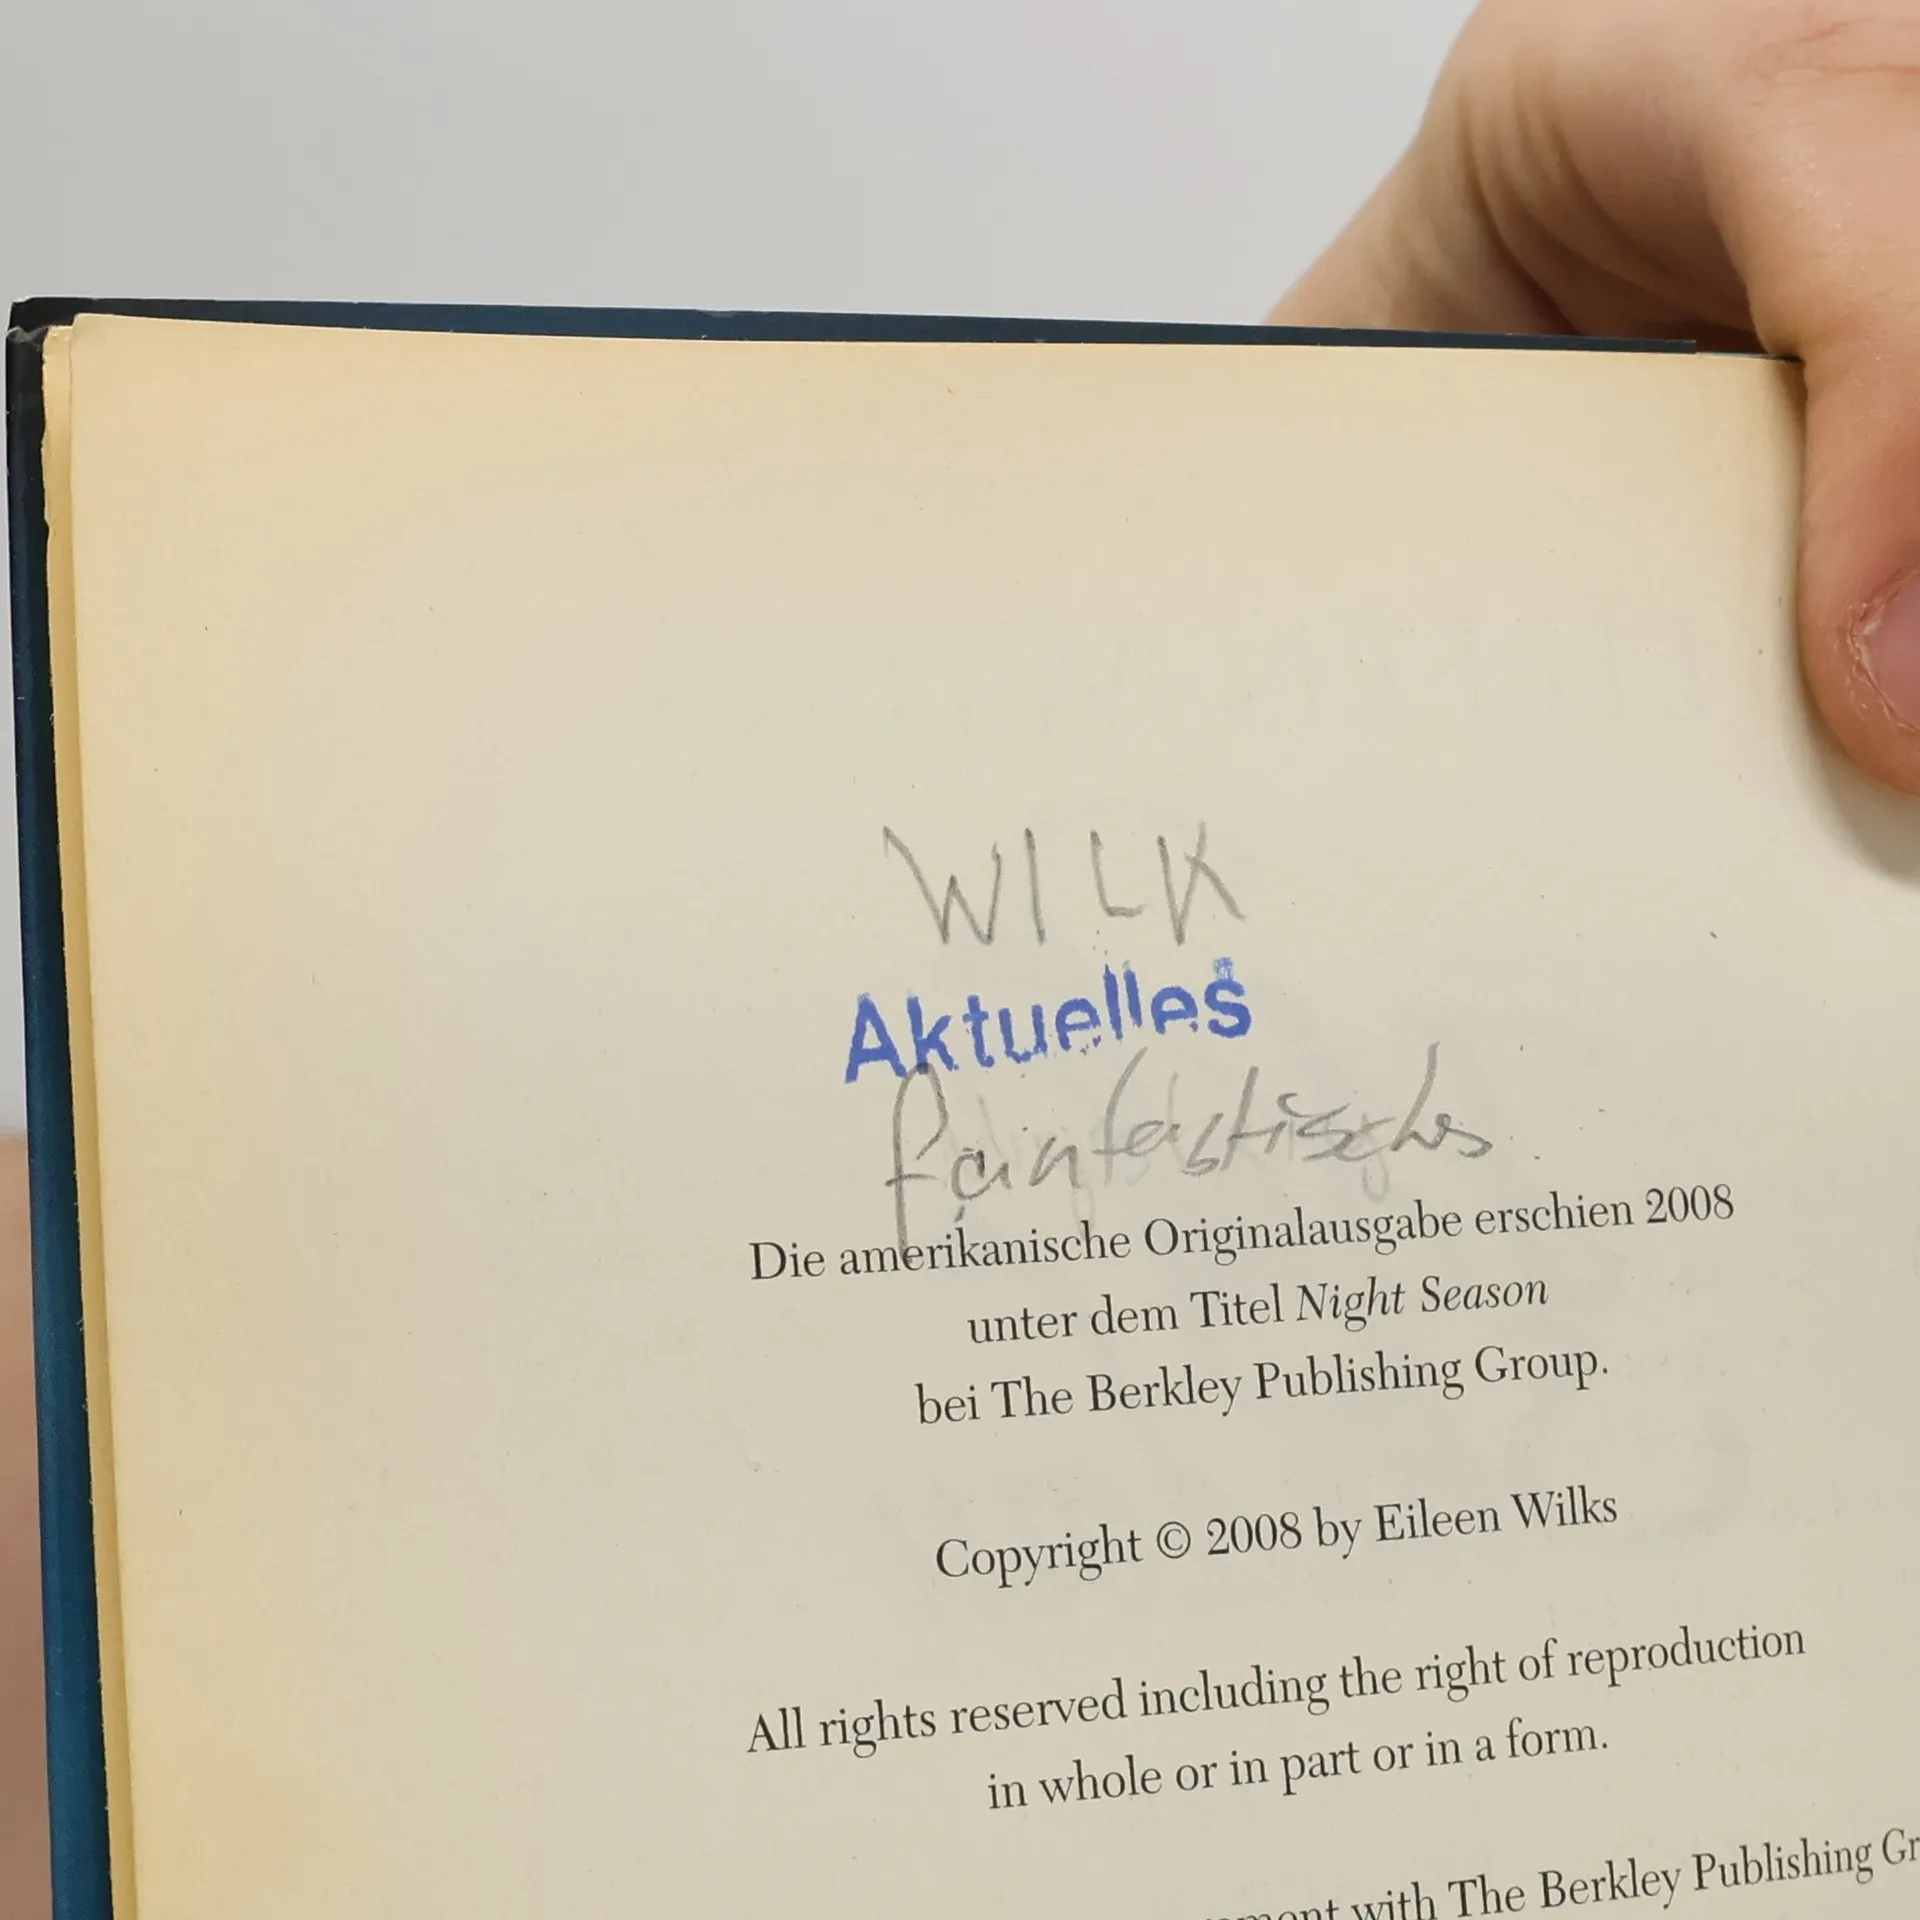 WILK
Aktuelles
fantastisches
Die amerikanische Originalausgabe erschien 2008
unter dem Titel Night Season
bei The Berkley Publishing Group.
Copyright © 2008 by Eileen Wilks
All rights reserved including the right of reproduction
in whole or in part or in a form.
with The Berkley Publishing Gr